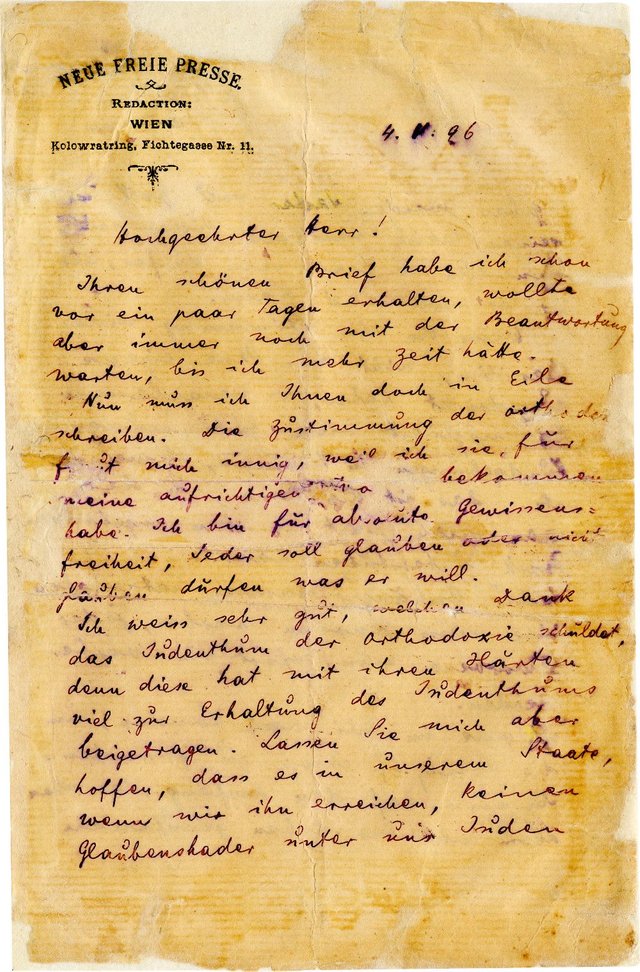 NEUE FREIE PRESSE.
REDACTION:
WIEN
Kolowratring, Fichtegasse Nr. 11.
4. 96
Hochgeehrter Herr!
Ihren schönen Brief habe ich schon
vor ein paar Tagen erhalten, wollte
aber immer noch mit der Beantwortung
warten, bis ich mehr Zeit hätte.
Nun muss ich Ihnen doch in Eile
schreiben. Die Zustimmung der orthodox
freut mich innig, weil ich sie für
meine aufrichtigen bekommen
habe. Ich bin für absolute Gewissens=
freiheit, Jeder soll glauben oder nicht
glauben dürfen was er will.
Ich weiss sehr gut, welchen Dank
das Judenthum der Orthodoxie schuldet,
denn diese hat mit ihren Härten
viel zur Erhaltung des Judenthums
beigetragen. Lassen Sie mich aber
hoffen, dass es in unserem Staate,
wenn wir ihn erreichen, keinen
Glaubenshader unter uns Juden